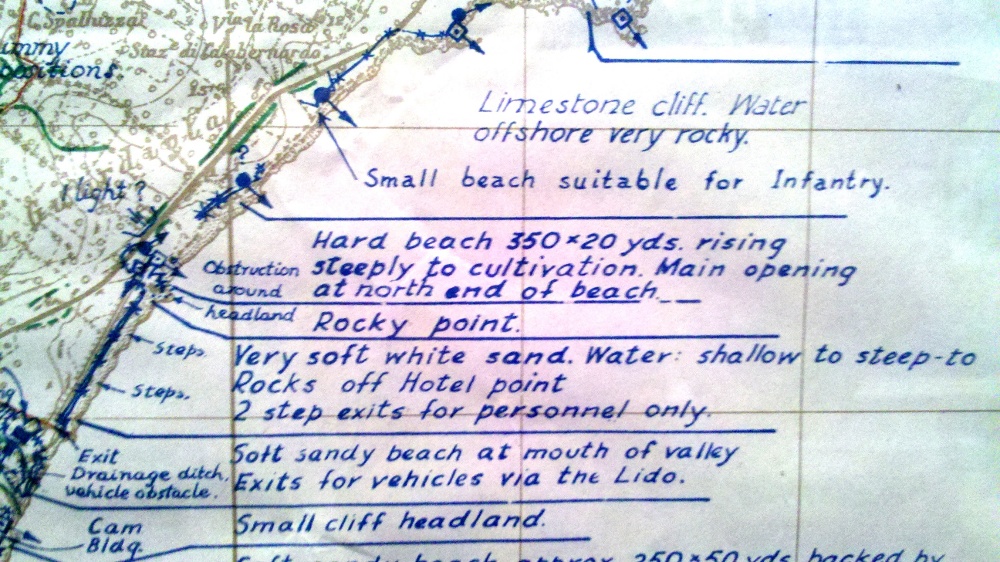 C. Spalluzza
Via la Rosa
Staz. di Calabernardo
ummy
ositions.
Limestone cliff. Water
offshore very rocky.
?
Small beach suitable for Infantry.
1 light ?
Hard beach 350×20 yds. rising
Obstruction steeply to cultivation. Main opening
around at north end of beach.
headland Rocky point.
Steps. Very soft white sand. Water: shallow to steep-to
Steps. Rocks off Hotel point
2 step exits for personnel only.
Exit Soft sandy beach at mouth of valley
Drainage ditch, Exits for vehicles via the Lido.
vehicle obstacle.
Cam Small cliff headland.
Bldg.
Soft sandy beach approx. 250×50 yds backed by